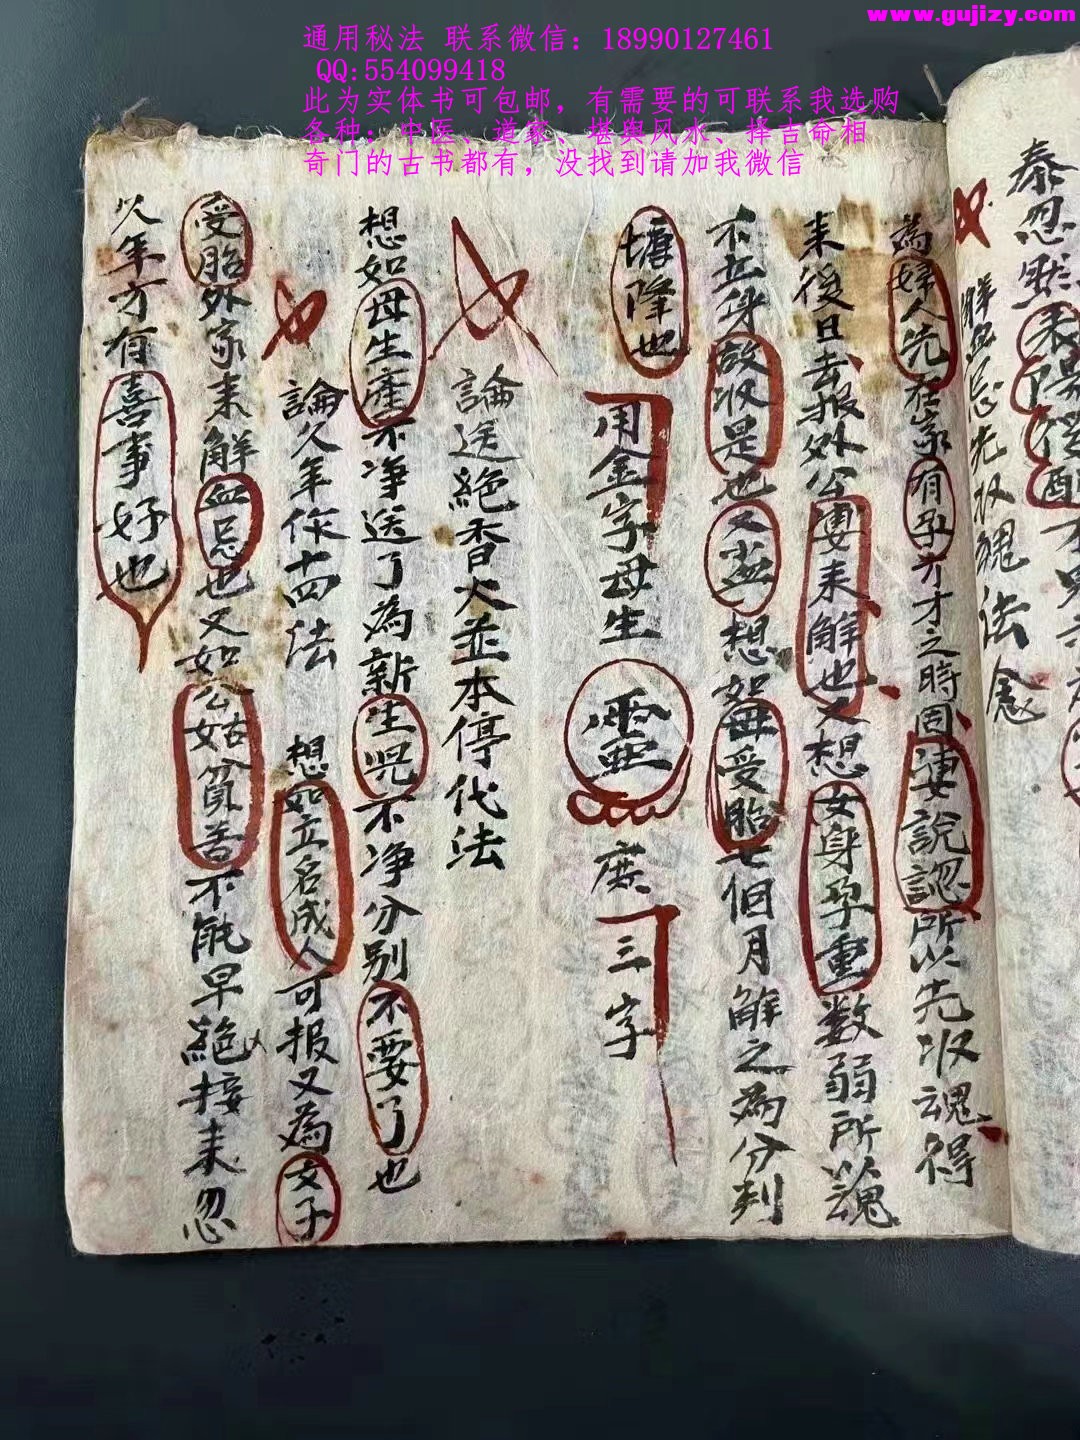 www.gujizy.com
通用秘法 联系微信：18990127461
QQ:554099418
此为实体书可包邮，有需要的可联系我选购
各种：中医、道家、堪舆风水、择吉命相
奇门的古书都有，没找到请加我微信
泰忍然
解血忌先收魂法念
為婦人先在家有孕才才之時因連說認所以先收魂得
来後旦去报外公连来解也又想女身孕重数弱所以魂
不在身故收是也又益想如母受胎七個月解之為分判
塘降也
用金字母生靈庶三字
論送絕香火並本停代法
想如母生產不净送了為新生児不净分别不要了也
論久年作十四法 想如立名成人可报又為女子
受胎外家来解血忌也又如公姑算善不能早絕接未忽
久年方有喜事好也